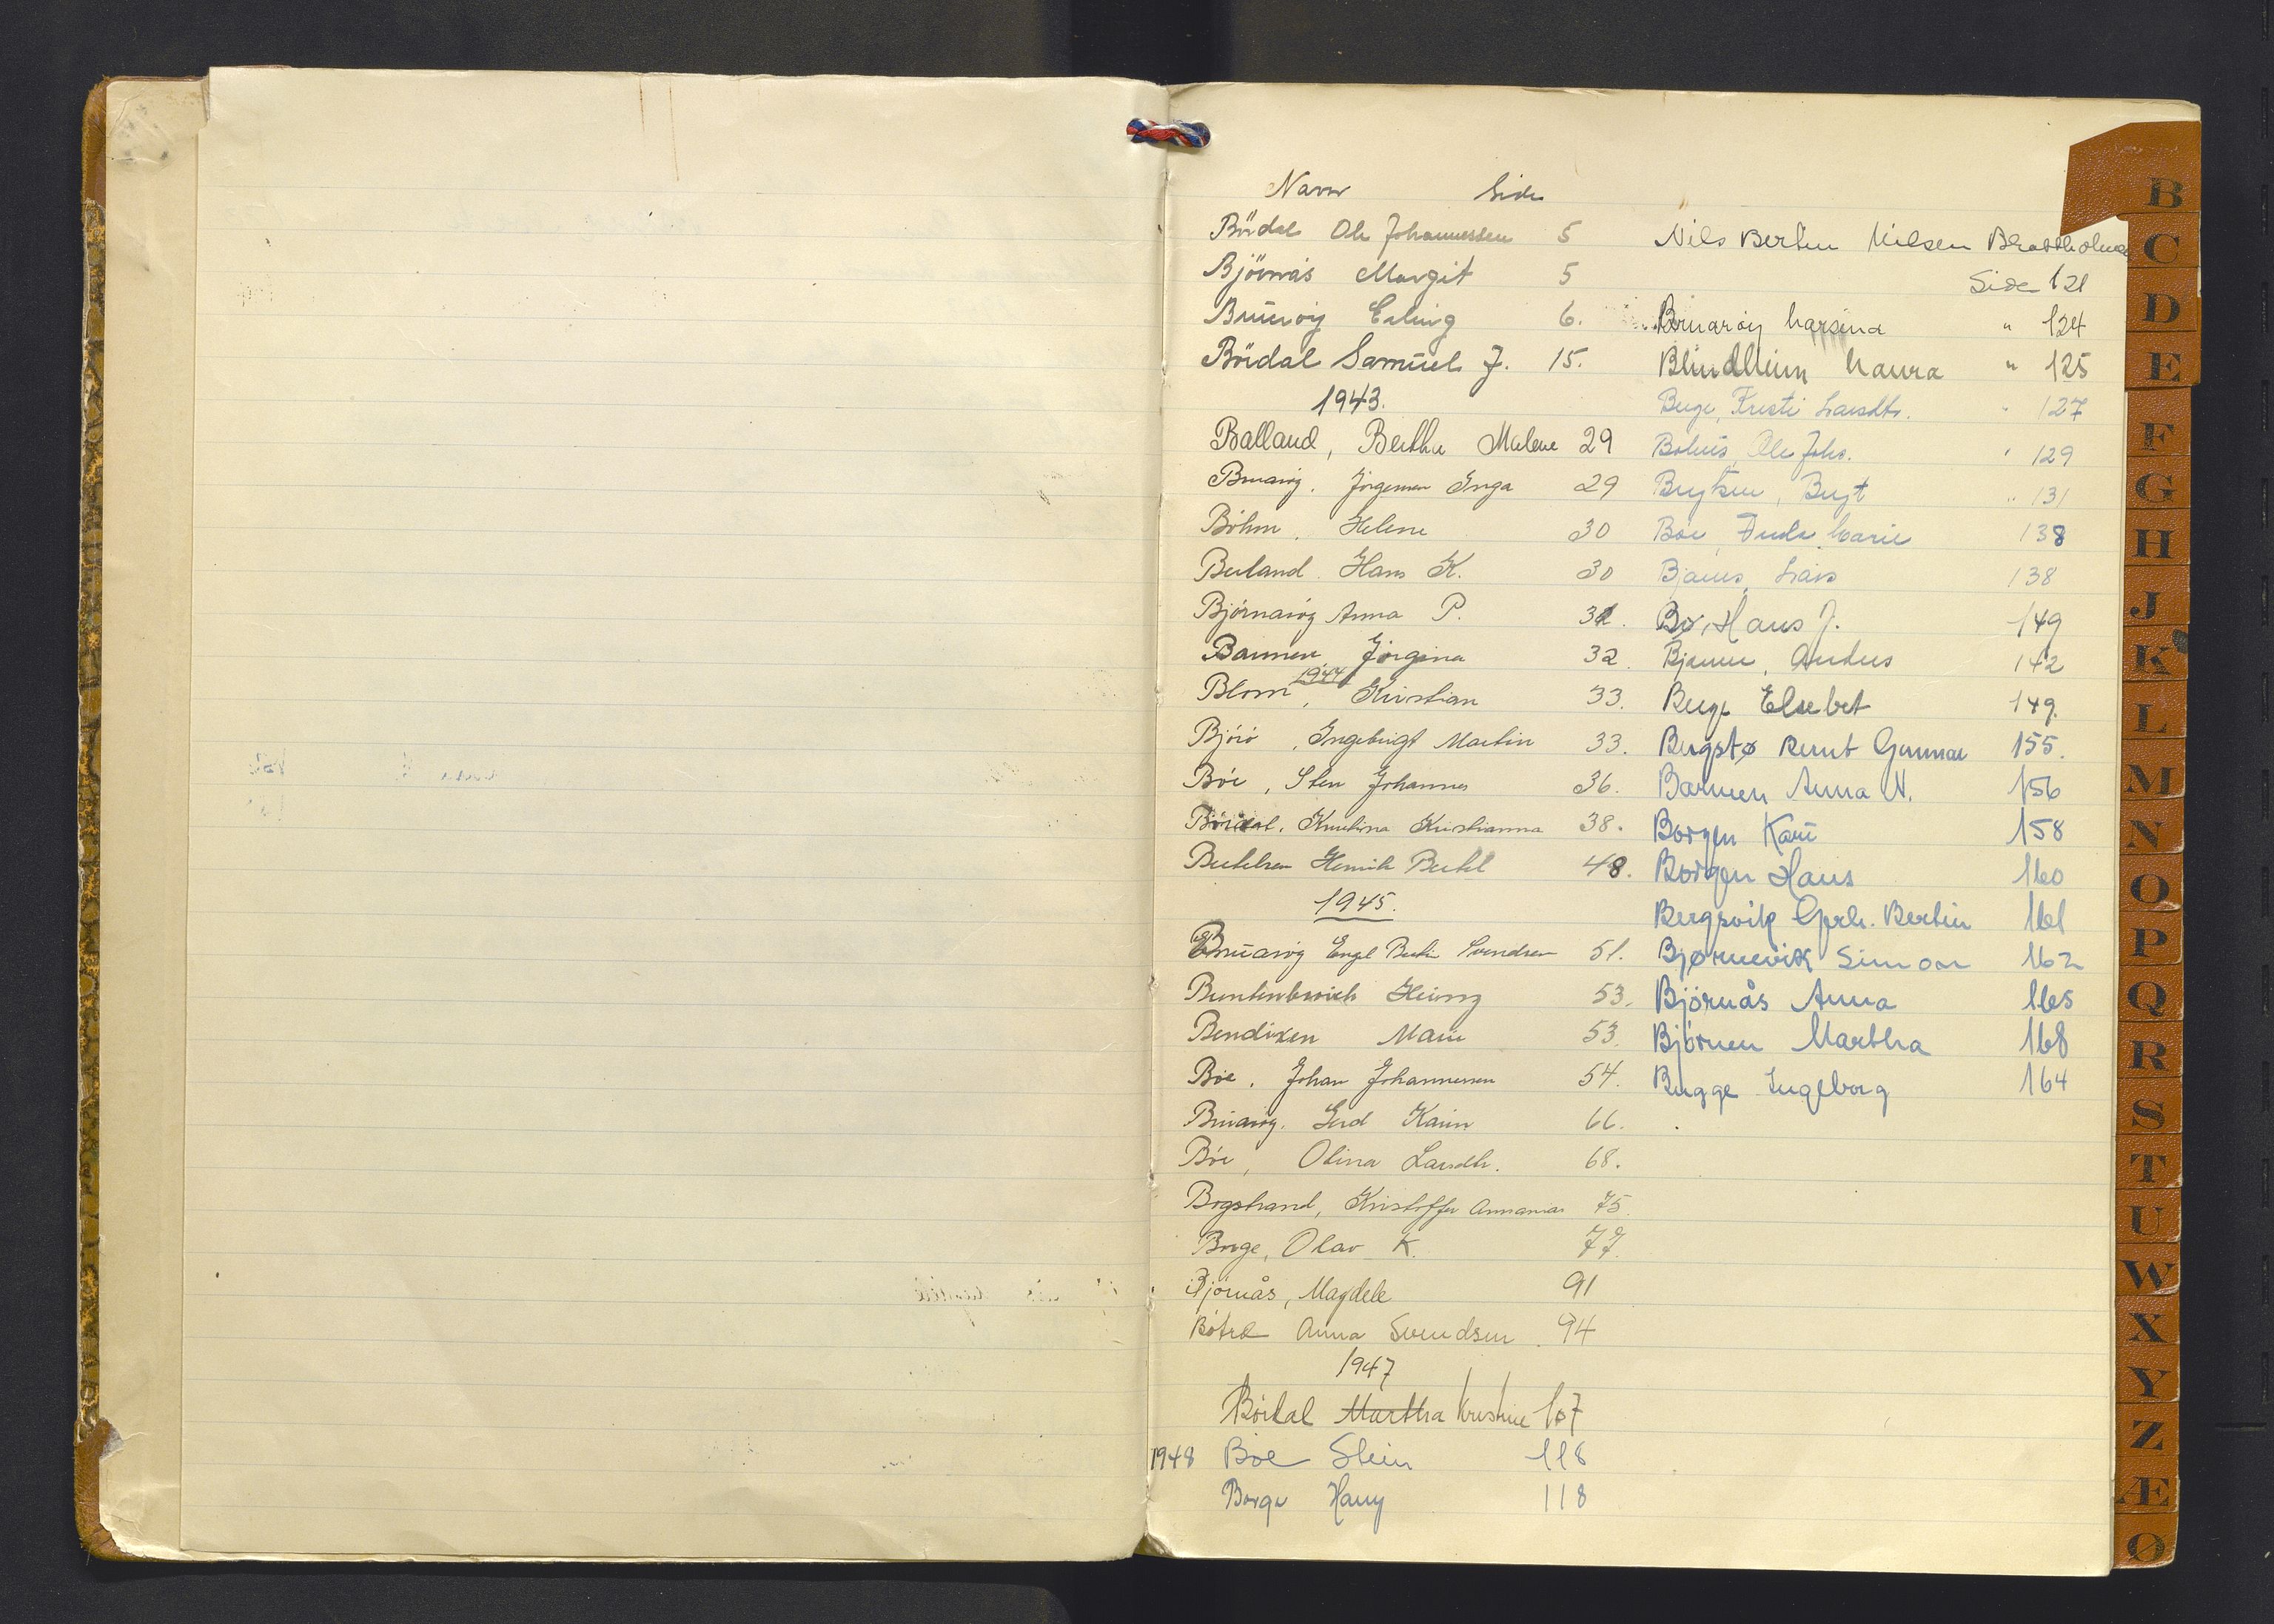 Navn Side
Bördal Ole Johannessen 5
Björnås Margit 5
Bruaröy Erling 6.
Bördal Samuel J. 15.
1943.
Balland, Berthe Malene 29
Bruaröy. Jörgensen Inga 29
Böhm, Helene 30
Berland. Hans K. 30
Björnaröy Anna P.
Barmen Jörgina 32.
1944
Blom, Kristian 33.
Björö, Ingebrigt Martin 33.
Böe, Sten Johannes 36.
Bördal. Kristianna 38.
Bertelsen Henrik Bertel 48.
1945.
Bruaröy Engel Bertin Svendsen 51.
Heinz 53.
Bendixen Marie 53.
Böe. Johan Johannessen 54.
Bruaröy. Gerd Karin 66.
Böe, Olina Larsdtr. 68.
Bogstrand, Kristoffer Annanias 75.
Berge, Olav K. 77.
Björnås, Magdele 91
Anna Svendsen 94
1947
Bördal Martha Kristine 107
1948 Böe Stein 118
Borge Harry 118
Nils Bertin Nilsen Brattholmen
Side 121
Bruaröy Larsina " 124
Blindheim Laura " 125
Berge, Kristi Larsdtr. " 127
Ole Johs. " 129
Berytsen, Beryt " 131
Böe, Marie 138
Bjånes, Lars 138
Bø, Hans J. 149
Anders 142
Berge Elsebet 149.
Bergstø Bernt Gunnar 155.
Barmen Anna N. 156
Borgen Kari 158
Borgen Hans 160
Bergsvik Gerh. Bertin 161
Bjørnevik Simon 162
Björnås Anna 165
Björnen Martha 168
Bugge Ingeborg 164
B
C
D
E
F
G
H
J
K
L
M
N
O
P
Q
R
S
T
U
W
X
Y
Z
Æ
Ø